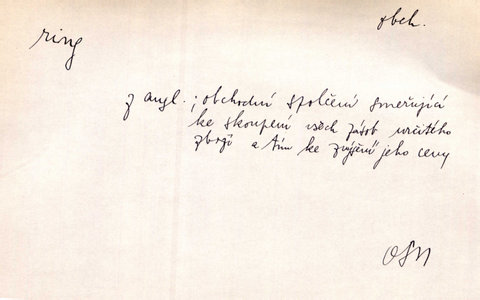 obch.
ring
z angl.; obchodní spolčení směřující
ke skoupení všech zásob určitého
zboží a tím ke zvýšení jeho ceny
OSN